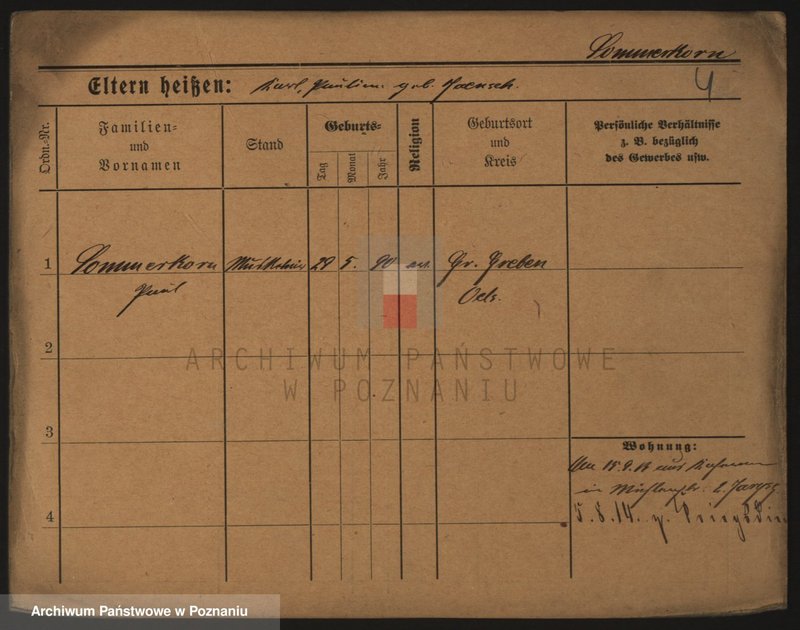 Sommerkorn
4
Eltern heißen: Karl, Pauline geb.
Ordn.-Nr.
Familien- und Vornamen
Stand
Geburts-
Tag
Monat
Jahr
Religion
Geburtsort und Kreis
Persönliche Verhältnisse
z. B. bezüglich
des Gewerbes usw.
1 Sommerkorn 29 5. 90 ev. Gr. Graben
Paul Oels.
2
ARCHIWUM PAŃSTWOWE
W POZNANIU
3
Wohnung:
aus
in
4 5.8.14. z.
Archiwum Państwowe w Poznaniu